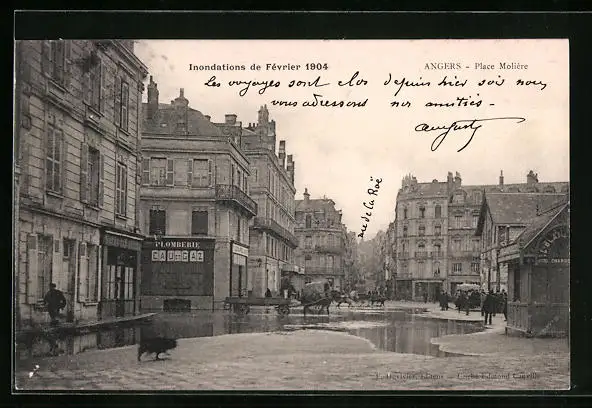 Inondations de Février 1904
ANGERS - Place Molière
Les voyages sont clos depuis hier soir nous
vous adressons nos amitiés -
rue de la Roë
PLOMBERIE
EAU GAZ
F. Duvivier, Editeur - Cliché Edmond Cauville